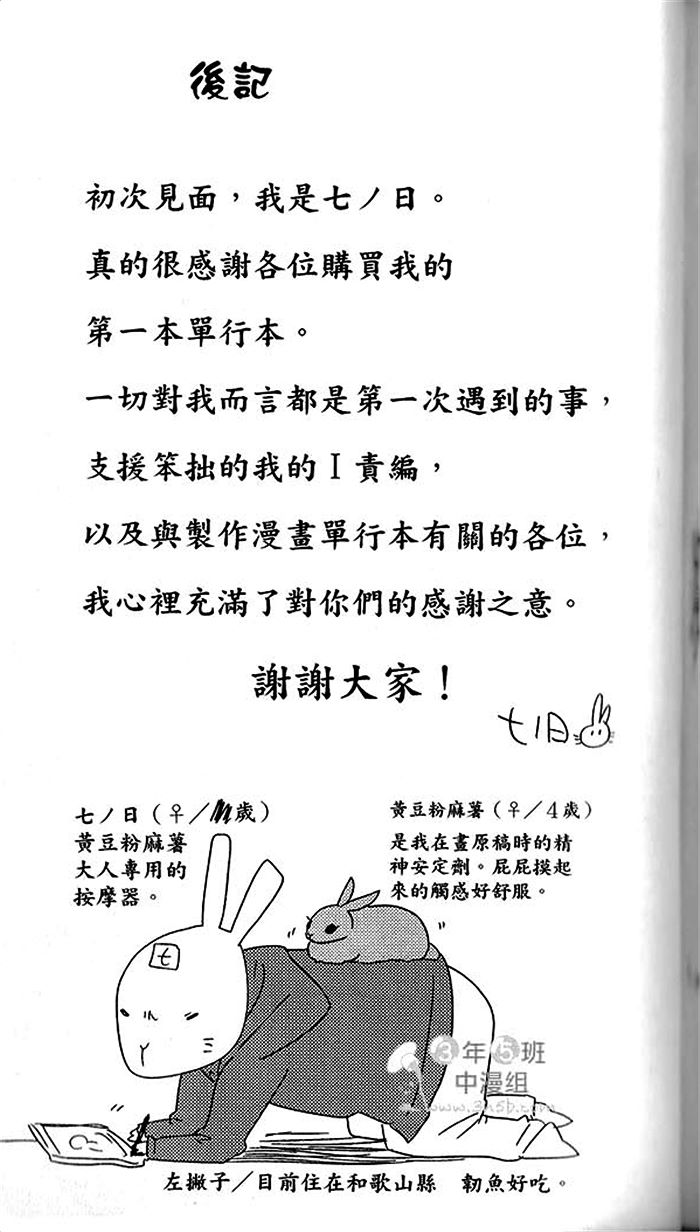 後記
初次見面，我是七ノ日。
真的很感謝各位購買我的
第一本單行本。
一切對我而言都是第一次遇到的事，
支援笨拙的我的Ｉ責編，
以及與製作漫畫單行本有關的各位，
我心裡充滿了對你們的感謝之意。
謝謝大家！
七ノ日
七ノ日（♀／歲）
黃豆粉麻薯
大人專用的
按摩器。
黃豆粉麻薯（♀／4歲）
是我在畫原稿時的精
神安定劑。屁屁摸起
來的觸感好舒服。
七
3年5班
中漫组
www.3n5b.com
左撇子／目前住在和歌山縣　魛魚好吃。